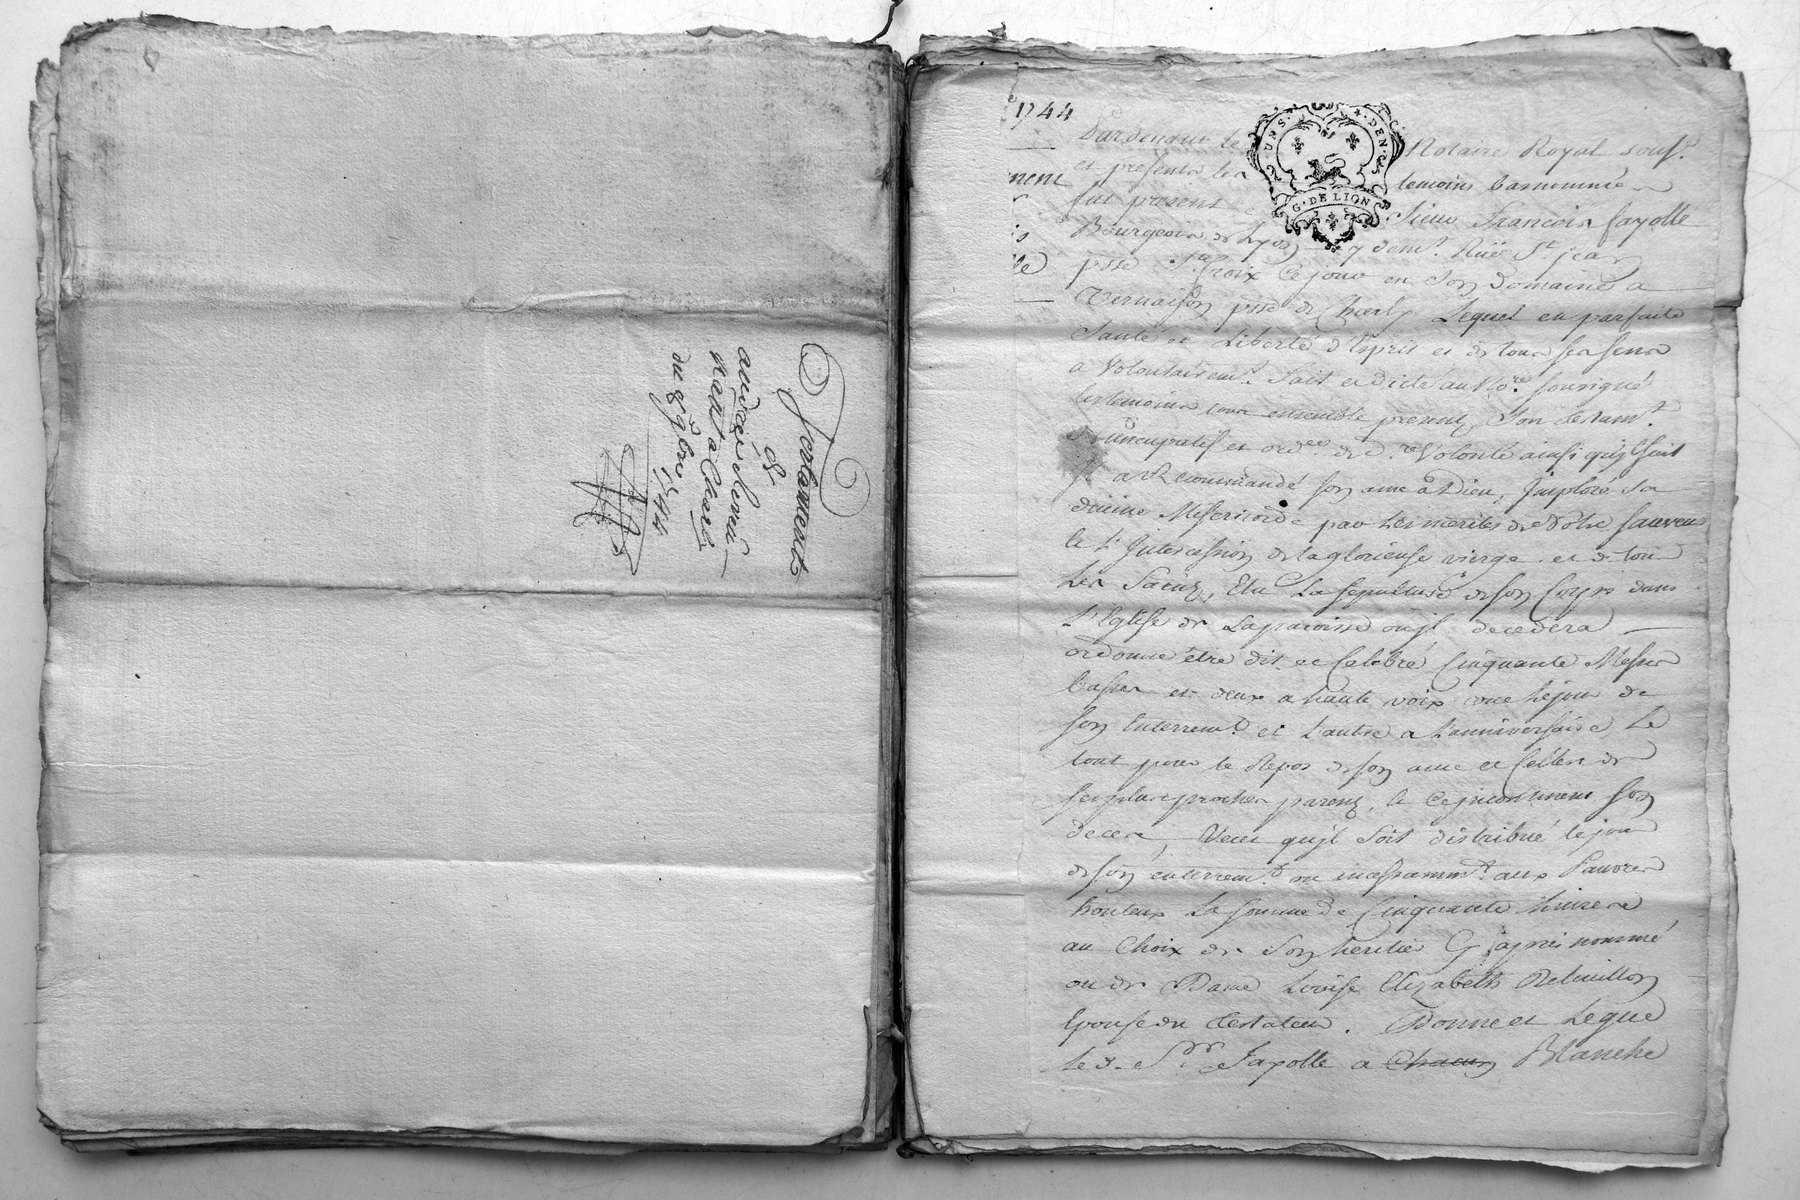 Testament
du 8 9bre 1744
1744
Pardevant le Notaire Royal sous.
et presents les temoins basnommés
fut present Sieur François fayolle
Bourgeois de Lyon y demt. Rüe St. jean
psse Ste Croix Ce jour en Son domaine a
Vernaison psse de Charly Lequel en parfaite
Santé et Liberté d'Esprit et de tous ses sens
a Volontairemt. fait et dicté au No.re sousigné
les temoins tous ensemble presents, Son testamt.
Nuncupatif et ordce. de d.re Volonté ainsi qu'jl suit
Jl a Recommandé son ame a Dieu, Jmploré sa
divine Misericorde par Les merites de Notre sauveur
le L'Intercession de la glorieuse vierge et de tous
Les Saints, Elu La sepulture de son Corps dans
L'Eglise de La paroisse où jl decedera
ordonne être dit et Celebré Cinquante Messes
basses et deux a haute voix une le jour de
son Enterremt. et L'autre a L'anniversaire, Le
tout pour le Repos de son ame et Celles de
ses plus proches parents, le Ce jncontinent son
deces, Veut qu'jl soit distribué le jour
de son enterremt. ou incessammt. aux Pauvres
honteux La somme de Cinquante Livres
au Choix de Son heritier Cy japrès nommé
ou de Dame Louise Elizabeth Retuillon
Epouse du testateur. Donne et Legue
Le d. Sr. Fayolle a Chacun Blanche
ment
le
UNS. 4. DEN.
G. DE LION